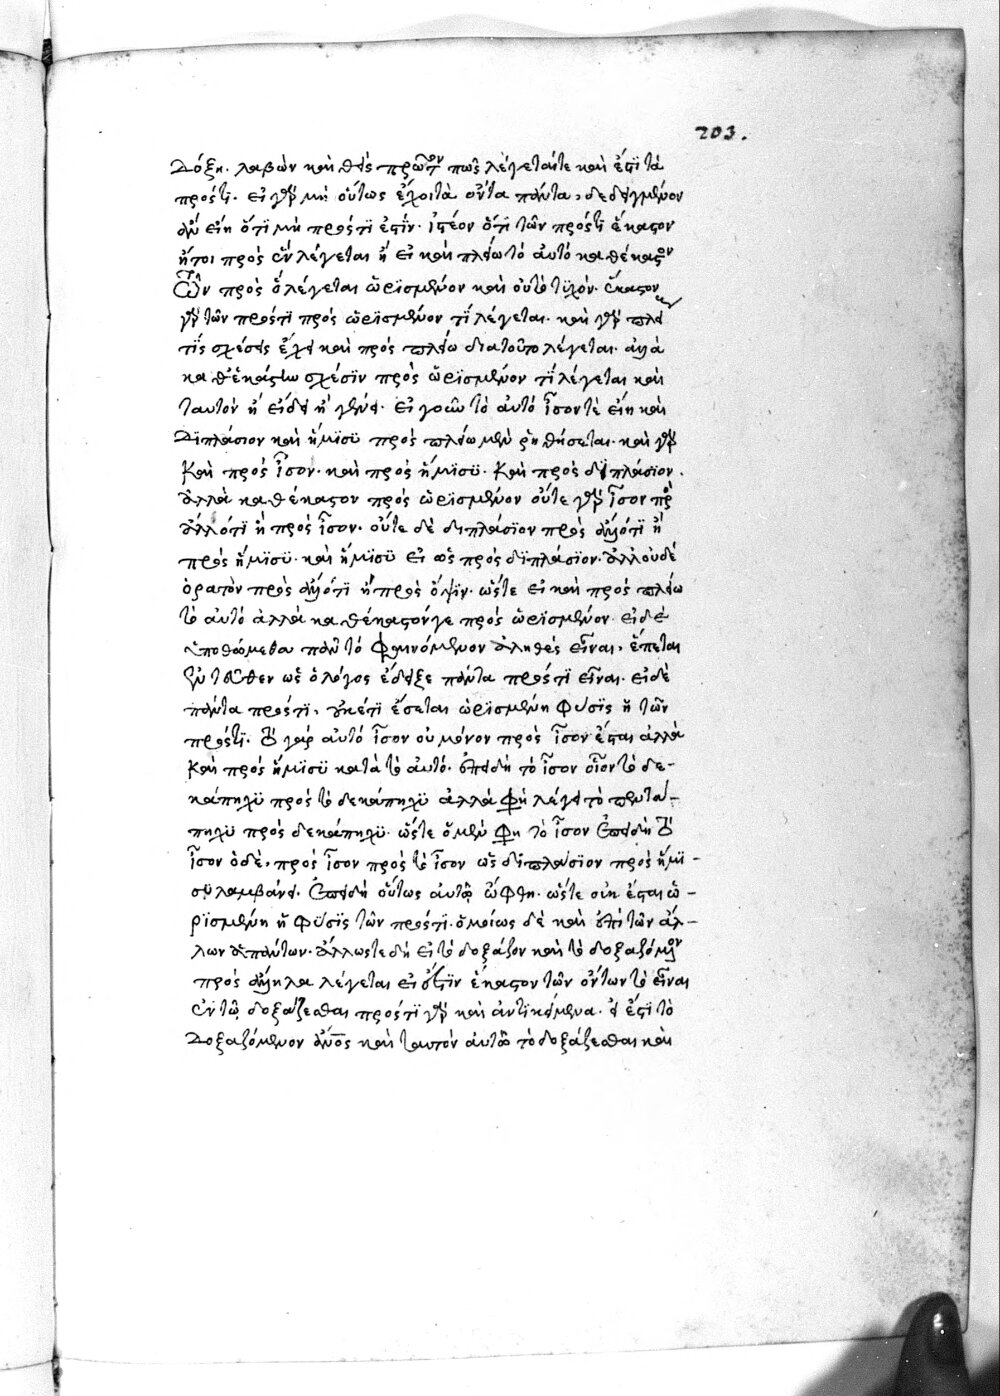 203.
δόξη. λαβὼν καὶ θεὶς πρῶτον πῶς λέγεταί τε καὶ ἔστι τὰ
πρόστι. εἰ γὰρ μὴ οὕτως ἔχοι τὰ ὄντα πάντα, δεδειγμένον
ἂν εἴη ὅτι μὴ πρόστι ἐστίν. ἰστέον ὅτι τῶν πρόστι ἕκαστον
ἤτοι πρὸς ἓν λέγεται ἢ εἰ καὶ πλείω τὸ αὐτὸ καθέκαστον
τῶν πρὸς ὃ λέγεται ὡρισμένον καὶ οὐ τὸ τυχόν. ἕκαστον
γὰρ τῶν πρόστι πρὸς ὡρισμένον τὶ λέγεται. κἂν γὰρ πλεί
τις σχέσεις ἔχει καὶ πρὸς πλείω διατοῦτο λέγεται. ἀλλὰ
καθ' ἑκάστω σχέσιν πρὸς ὡρισμένον τι λέγεται καὶ
ταυτὸν ἢ εἴδει ἢ γένει. εἰ γοῦν τὸ αὐτὸ ἴσον τὲ εἴη καὶ
διπλάσιον καὶ ἥμισυ πρὸς πλείω μὲν ῥηθήσεται. καὶ γὰρ
καὶ πρὸς ἴσον. καὶ πρὸς ἥμισυ. καὶ πρὸς διπλάσιον.
ἀλλὰ καθέκαστον πρὸς ὡρισμένον οὔτε γὰρ ἴσον πρὸς
ἄλλό τι ἢ πρὸς ἴσον. οὔτε δὲ διπλάσιον πρὸς ἄλλό τι ἢ
πρὸς ἥμισυ. καὶ ἥμισυ εἰ ὡς πρὸς διπλάσιον. ἀλλ' οὐδὲ
ὁρατὸν πρὸς ἄλλό τι ἢ πρὸς ὄψιν. ὥστε εἰ καὶ πρὸς πλείω
τὸ αὐτὸ ἀλλὰ καθέκαστόν γε πρὸς ὡρισμένον. εἰ δὲ
ὑποθώμεθα πᾶν τὸ φαινόμενον ἀληθὲς εἶναι, ἕπεται
ἐντεῦθεν ὡς ὁ λόγος ἔδειξε πάντα πρόστι εἶναι. εἰ δὲ
πάντα πρόστι, οὐκέτι ἔσεται ὡρισμένη φύσις ἡ τῶν
πρόστι. τὸ γὰρ αὐτὸ ἴσον οὐ μόνον πρὸς ἴσον ἔσται ἀλλὰ
καὶ πρὸς ἥμισυ κατὰ τὸ αὐτό. ἐπειδὴ τὸ ἴσον οἷον τὸ δε-
κάπηχυ πρὸς τὸ δεκάπηχυ ἀλλὰ φῇ λέγει τὸ πεντά-
πηχυ πρὸς δεκάπηχυ. ὥστε ὁ μὲν φῇ τὸ ἴσον ἐπειδὴ τὸ
ἴσον ὁ δὲ, πρὸς ἴσον πρὸς τὸ ἴσον ὡς διπλάσιον πρὸς ἥμι-
συ λαμβάνει. ἐπειδὴ οὕτως αὐτῷ ὤφθη. ὥστε οὐκ ἔσται ὡ-
ρισμένη ἡ φύσις τῶν πρόστι. ὁμοίως δὲ καὶ ἐπὶ τῶν ἄλ-
λων ἁπάντων. ἄλλωστε δὴ εἰ τὸ δοξάζον καὶ τὸ δοξαζόμενον
πρὸς ἄλληλα λέγεται εἰ ἔστιν ἑκάστον τῶν ὄντων τὸ εἶναι
ἐν τῷ δοξάζεσθαι πρόστι γὰρ καὶ ἀντικείμενα. εἰ ἔστι τὸ
δοξαζόμενον ἄνος καὶ ταυτὸν αὐτῷ τὸ δοξάζεσθαι καὶ